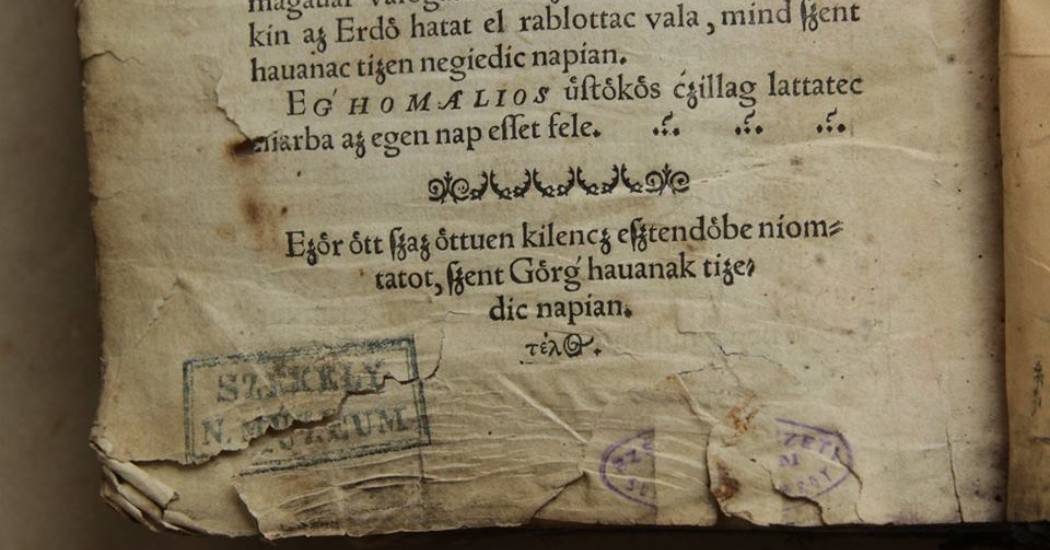 kin aʒ Erdô hatat el rablottac vala, mind ſʒent
hauanac tiʒen negiedic napian.
EǴHOMALIOS ûſtôkôs ćʒillag lattatec
aʒ egen nap eſſet fele.
Eʒôr ôtt ſʒaʒ ôttuen kilencʒ eſʒtendôbe niom⸗
tatot, ſʒent Gôrǵ hauanak tiʒe⸗
dic napian.
τέλος.
SZÉKELY
N. MÚZEUM